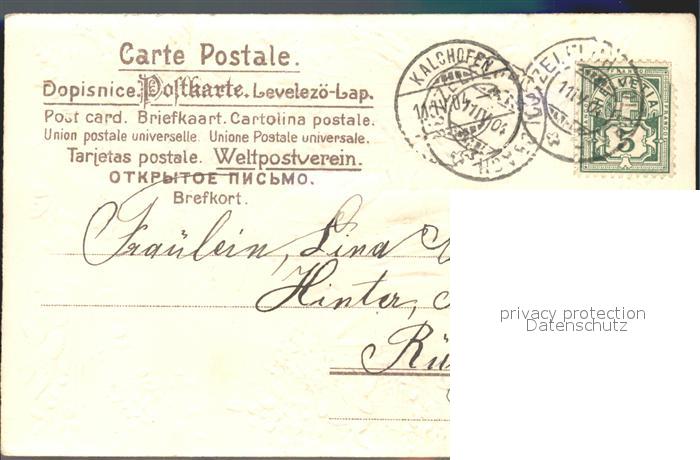 Carte Postale.
Dopisnice. Postkarte. Levelező-Lap.
Post card. Briefkaart. Cartolina postale.
Union postale universelle. Unione Postale universale.
Tarjetas postale. Weltpostverein.
ОТКРЫТОЕ ПИСЬМО.
Brefkort.
KALCHOFEN
HELVETIA
5
Fräulein, Lina
Hinter,
privacy protection
Datenschutz